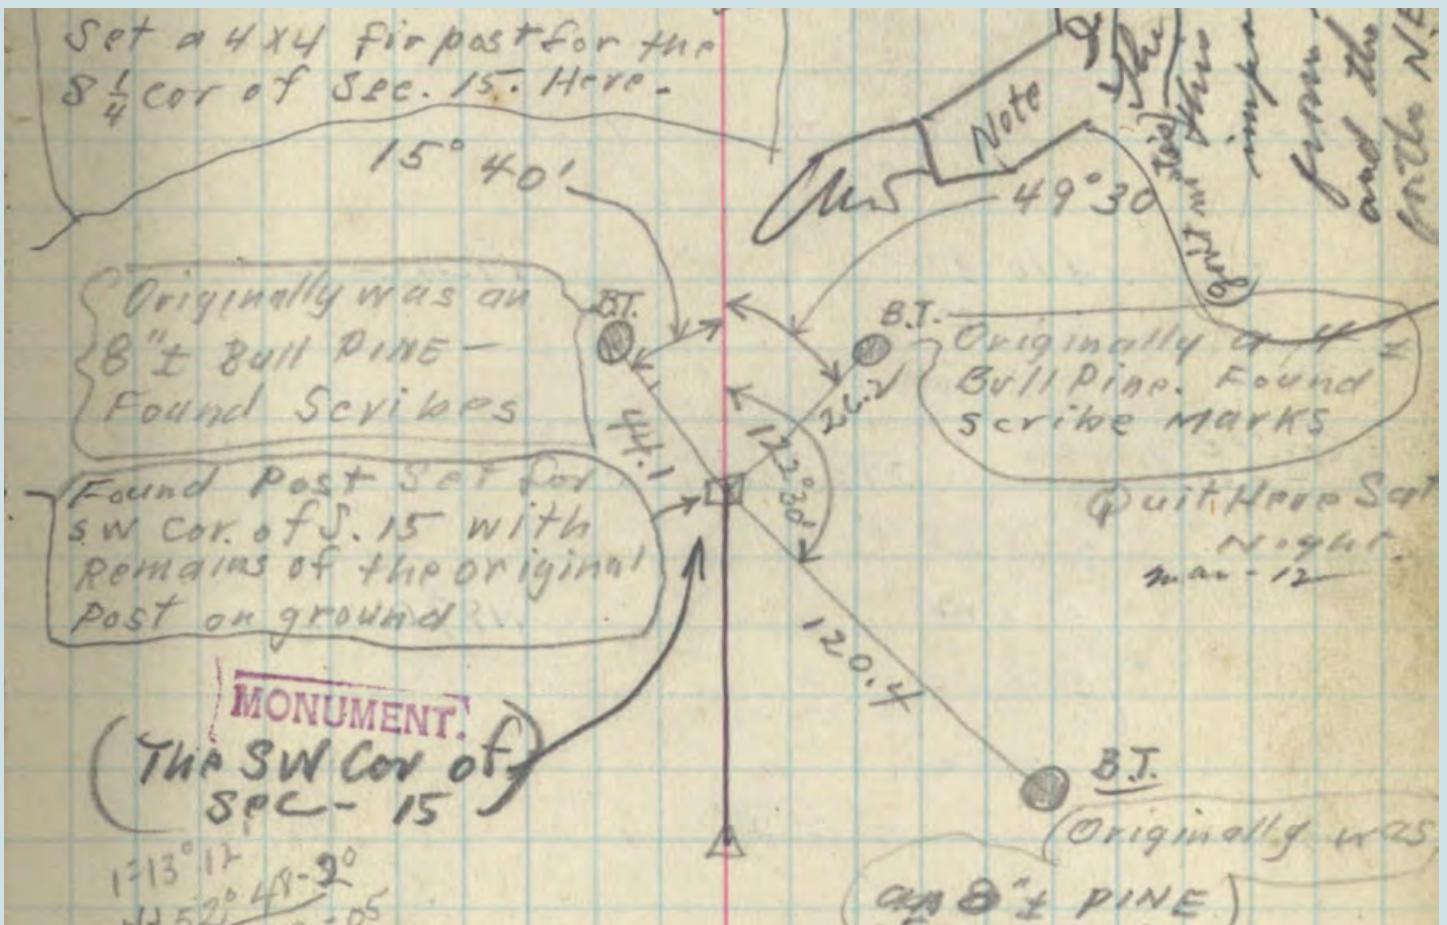 Set a 4x4 fir post for the
S 1/4 cor of Sec. 15. Here.
15° 40'
Note
49° 30
the
this
from
and the
Originally was an
8"± Bull PINE -
Found Scribes
B.T.
B.T.
Originally a
Bull Pine. Found
scribe Marks
44.1
26.2
122° 30'
Found Post Set for
SW Cor. of S. 15 with
Remains of the original
Post on ground
Quit Here Sat
Night.
mar-12
120.4
MONUMENT.
(The SW Cor of
Sec - 15)
B.T.
(Originally was
an 8"± PINE)